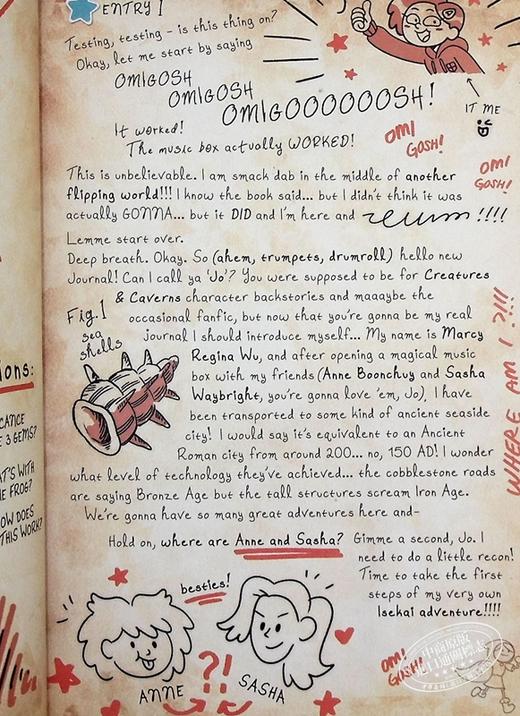 ENTRY 1
Testing, testing - is this thing on?
Okay, let me start by saying
OMIGOSH
OMIGOSH
OMIGOOOOOOSH!
IT ME
It worked!
The music box actually WORKED!
OMI GOSH!
OMI GOSH!
This is unbelievable. I am smack dab in the middle of another
flipping world!!! I know the book said... but I didn't think it was
actually GONNA... but it DID and I'm here and !!!!
Lemme start over.
Deep breath. Okay. So (ahem, trumpets, drumroll) hello new
Journal! Can I call ya 'Jo'? You were supposed to be for Creatures
& Caverns character backstories and maaaybe the
occasional fanfic, but now that you're gonna be my real
journal I should introduce myself... My name is Marcy
Regina Wu, and after opening a magical music
box with my friends (Anne Boonchuy and Sasha
Waybright, you're gonna love 'em, Jo), I have
been transported to some kind of ancient seaside
city! I would say it's equivalent to an Ancient
Roman city from around 200... no, 150 AD! I wonder
what level of technology they've achieved... the cobblestone roads
are saying Bronze Age but the tall structures scream Iron Age.
We're gonna have so many great adventures here and-
Fig.1
sea
shells
WHERE AM I ?!!!
Hold on, where are Anne and Sasha? Gimme a second, Jo. I
need to do a little recon!
Time to take the first
steps of my very own
Isekai adventure!!!!
besties!
?!
ANNE
SASHA
OMI GOSH!
ions:
CANCE
E 3 GEMS?
AT'S WITH
HE FROG?
OW DOES
THIS WORK?